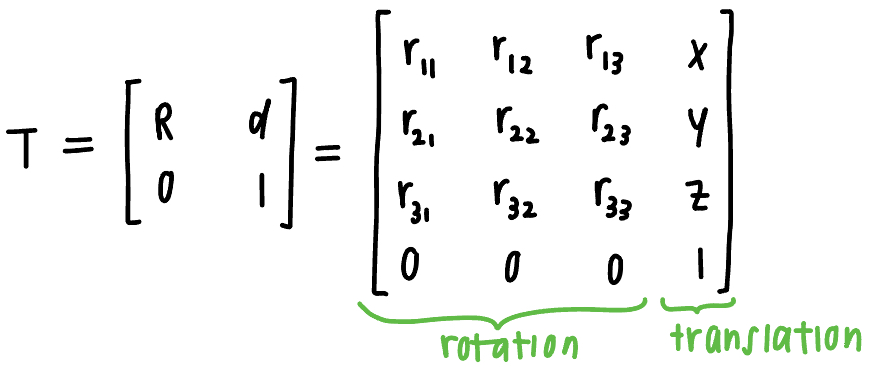 T = [ R d ; 0 1 ] = [ r₁₁ r₁₂ r₁₃ x
r₂₁ r₂₂ r₂₃ y
r₃₁ r₃₂ r₃₃ z
0 0 0 1 ]
rotation translation